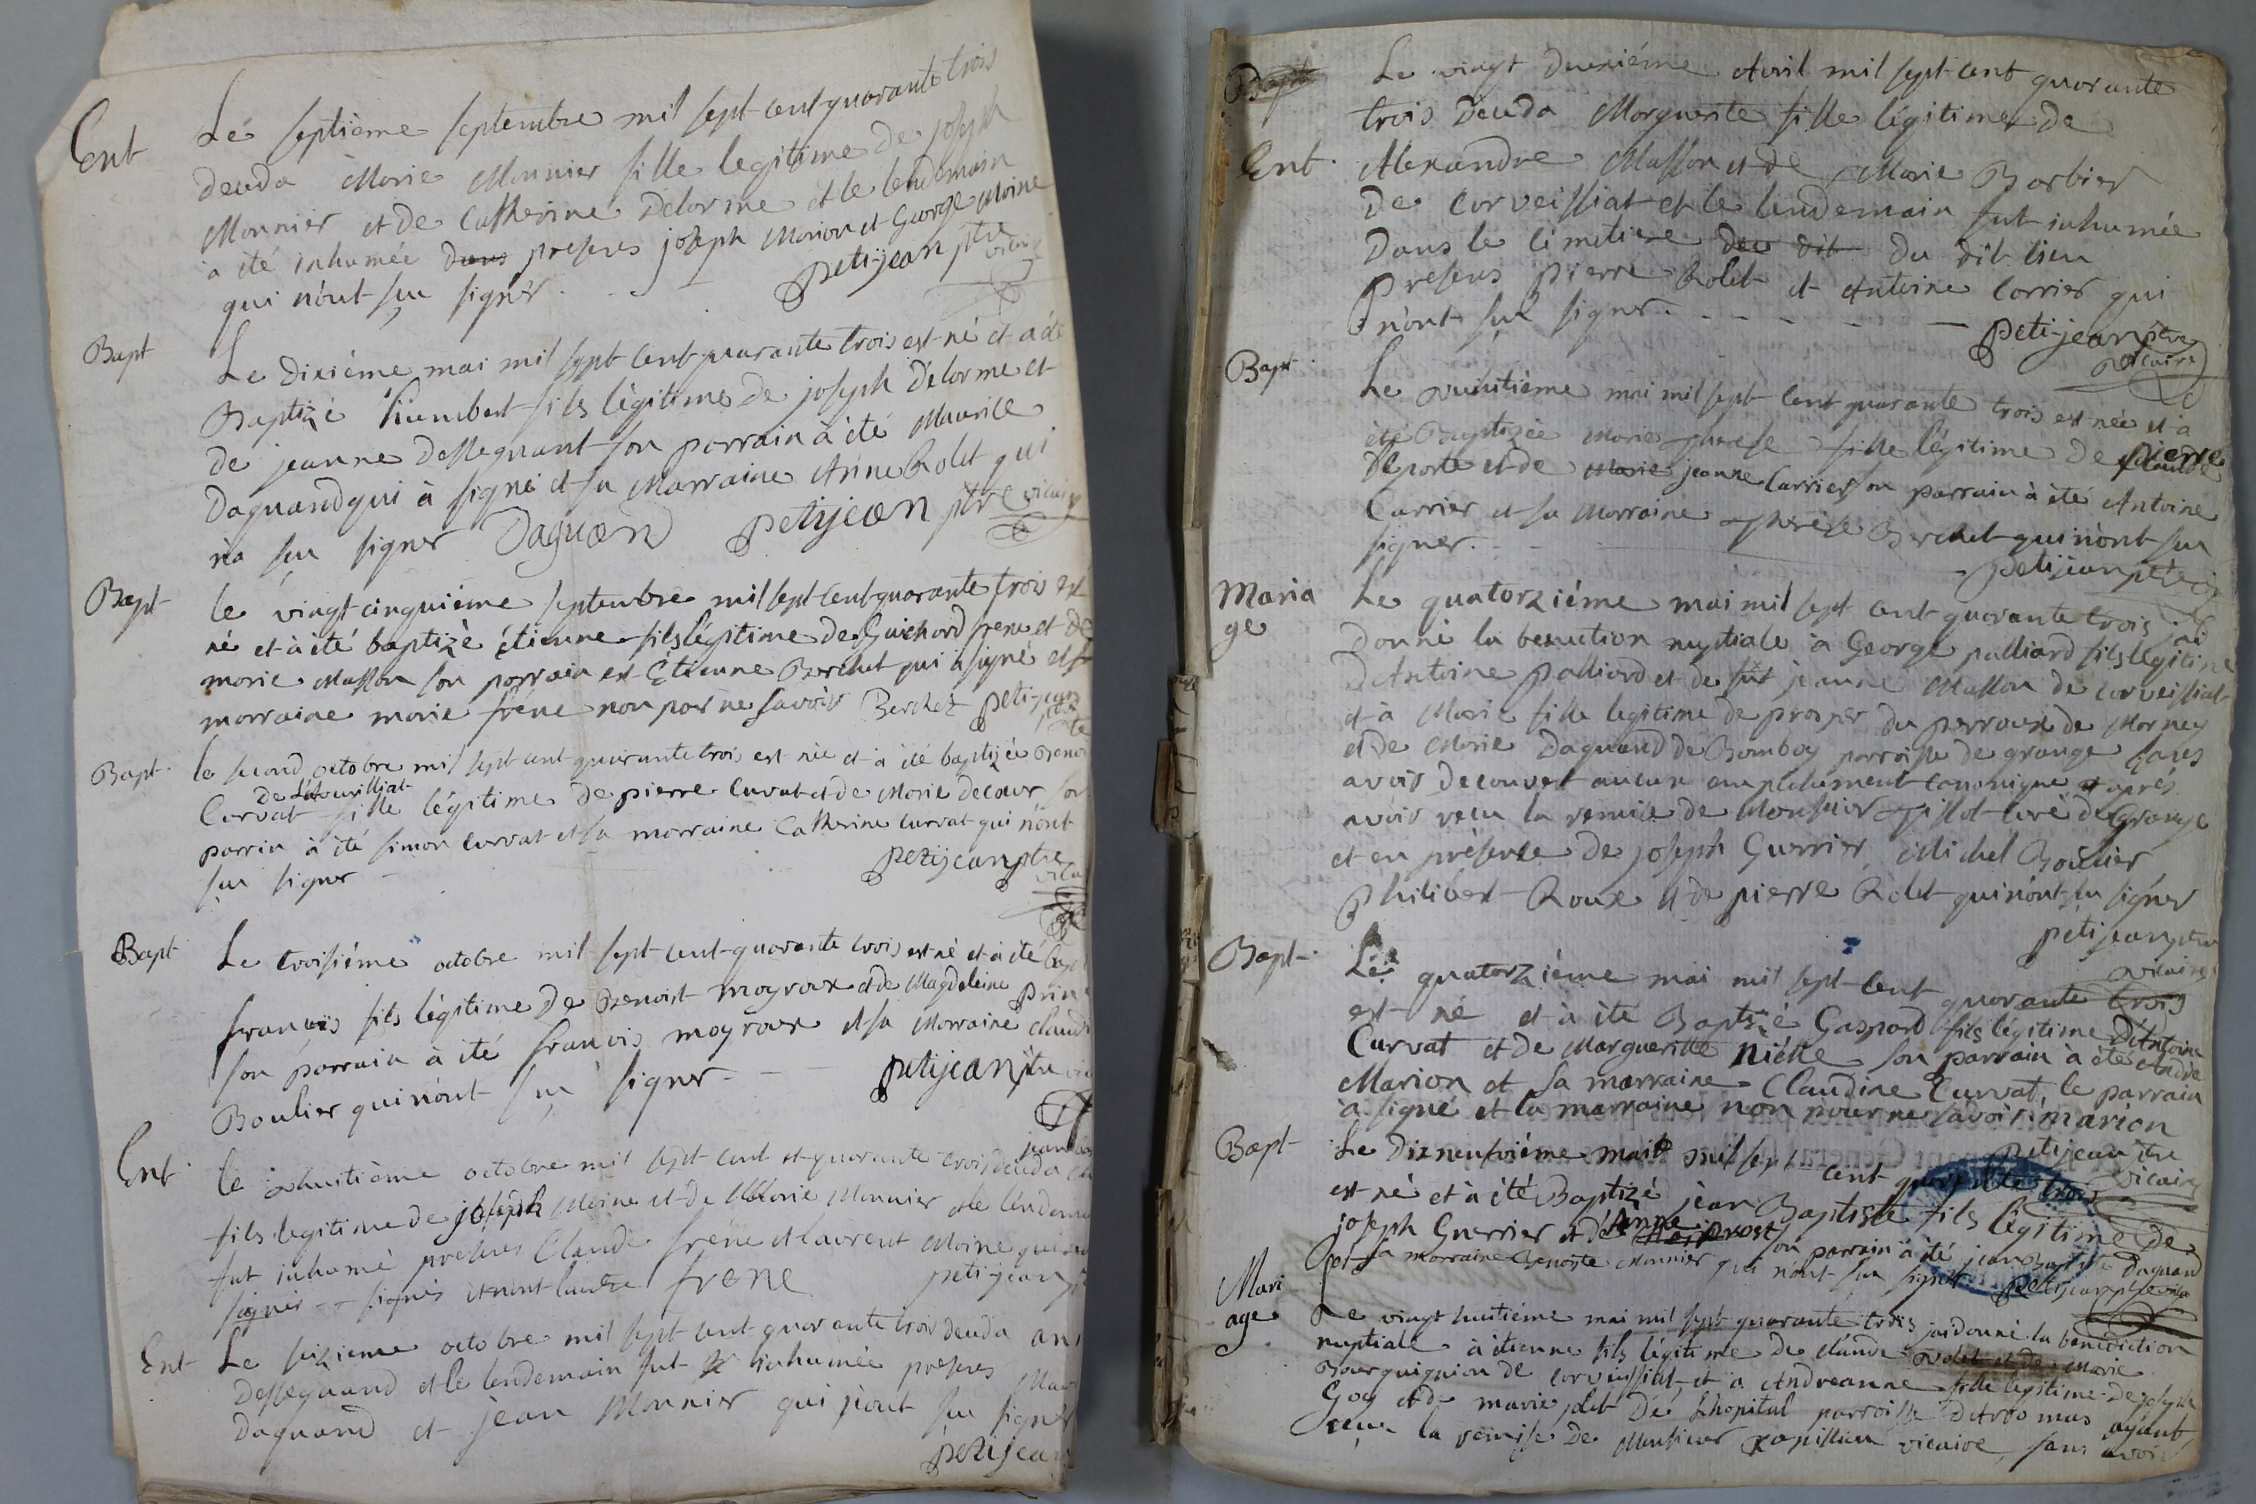 Ent
Lé septième septembre mil sept cent quarante trois
deceda Marie Monnier fille legitime de joseph
Monnier et de Catherine Delorme et le lendemain
a été inhumée dans presens joseph Morion et George Moine
qui n'ont sçu signer. petijean ptre vicaire
Bapt
Le dixiéme mai mil sept cent quarante trois est né et a été
Baptizé humbert fils légitime de joseph délorme et
de jeanne dessegnant son parrain à été Maurice
Daguand qui à signé et sa Marraine Anne Rolet qui
na sçu signer Daguand petijean ptre vicaire
Bapt
le vingt cinquième septembre mil sept cent quarante trois est
né et à été baptizè étienne fils légitime de Guichard frene et de
marie Masson son parrain est Étienne Berchet qui à signé et sa
marraine marie frêne non pour ne savoir Berchet petijean ptre
Bapt
le second octobre mil sept cent quarante trois est née et à été baptizée
de
Curvat fille légitime de pierre Curvat et de Marie decour son
parrin à été simon Curvat et sa marraine Catherine Curvat qui n'ont
sçu signer petijean ptre vicaire
Bapt
Le troisiéme octobre mil sept cent quarante trois est né et à été bapt
françois fils légitime de Benoist moyroux et de Magdeleine prin
son parrain à été françois moyroux et sa Marraine claud
Boulier qui n'ont sçu signer petijean ptre
Ent
le huitième octobre mil sept cent et quarante trois deceda
jean
fils legitime de joseph Moine et de Marie Monnier et le lendemain
fut inhumé presens Claude frêne et laurent Moine qui
signer signés frene petijean
Ent
Le seizieme octobre mil sept cent quarante trois deceda
dessegnand et le lendemain fut inhumée presens
Daguand et jean Monnier qui n'ont sçu signer
petijean
Bapt
Le vingt deuxiéme Avril mil sept cent quarante
Ent
trois deceda Marguerite fille légitime de
Alexandre Masson et de Marie Barbier
de Corveissiat et le lendemain fut inhumée
dans le cimetiere du dit du dit lieu
presens pierre Rolet et Antoine Corrier qui
n'ont sçu signer. petijean ptre
vicaire
Bapt
Le huitième mai mil sept cent quarante trois est née et à
été Baptizée Marie therese fille légitime de pierre
Claude
déporte et de Marie jeanne Carrier son parrain à été Antoine
Carrier et sa Marraine thérèse Berchet qui n'ont sçu
signer. petijean ptre
Maria
ge
Le quatorziéme mai mil sept cent quarante trois j'ai
donné la benection nuptiale à George palliard fils légitime
d'Antoine palliard et de fût jeanne Masson de Corveissiat
et à Marie fille legitime de prosper du perroux de Morney
et de Marie Daguand de Bombey parroisse de grange sans
avoir decouvert aucun empechement canonique et aprés
avoir reçu la remise de Monsieur tissot curé de Grange
et en présence de joseph Guerrier, Michel Boulier
philibert Roux et de pierre Rolet qui n'ont sçu signer
petijean ptre
vicaire
Bapt
Le quatorziéme mai mil sept cent quarante trois
est né et à été Baptizé Gaspard fils légitime d'Antoine
Curvat et de Marguerite Niélle son parrain à été André
Marion et sa marraine Claudine Curvat, le parrain
à signé et la marraine non pour ne sàvoir. marion
petijean ptre
vicaire
Bapt
Le dixneuviéme mai mil sept cent quarante trois
est né et à été Baptizé jean Baptiste fils légitime de
joseph Guerrier et d'Anne prost son parrain à été jean Baptiste Daguand
et sa marraine Benoite Monnier qui n'ont sçu signer petijean ptre vicaire
Mari
age
Le vingt huitiéme mai mil sept quarante trois jai donné la bénédiction
nuptiale à étienne fils légitime de claude Rolet et de Marie
Bourguignion de Corveissiat et a Andreanne fille legitime de joseph
Goy et de marie jolet De L'hopital parroisse d'Aromas ayant
reçu la remise de Monsieur papillion vicaire, sans avoir